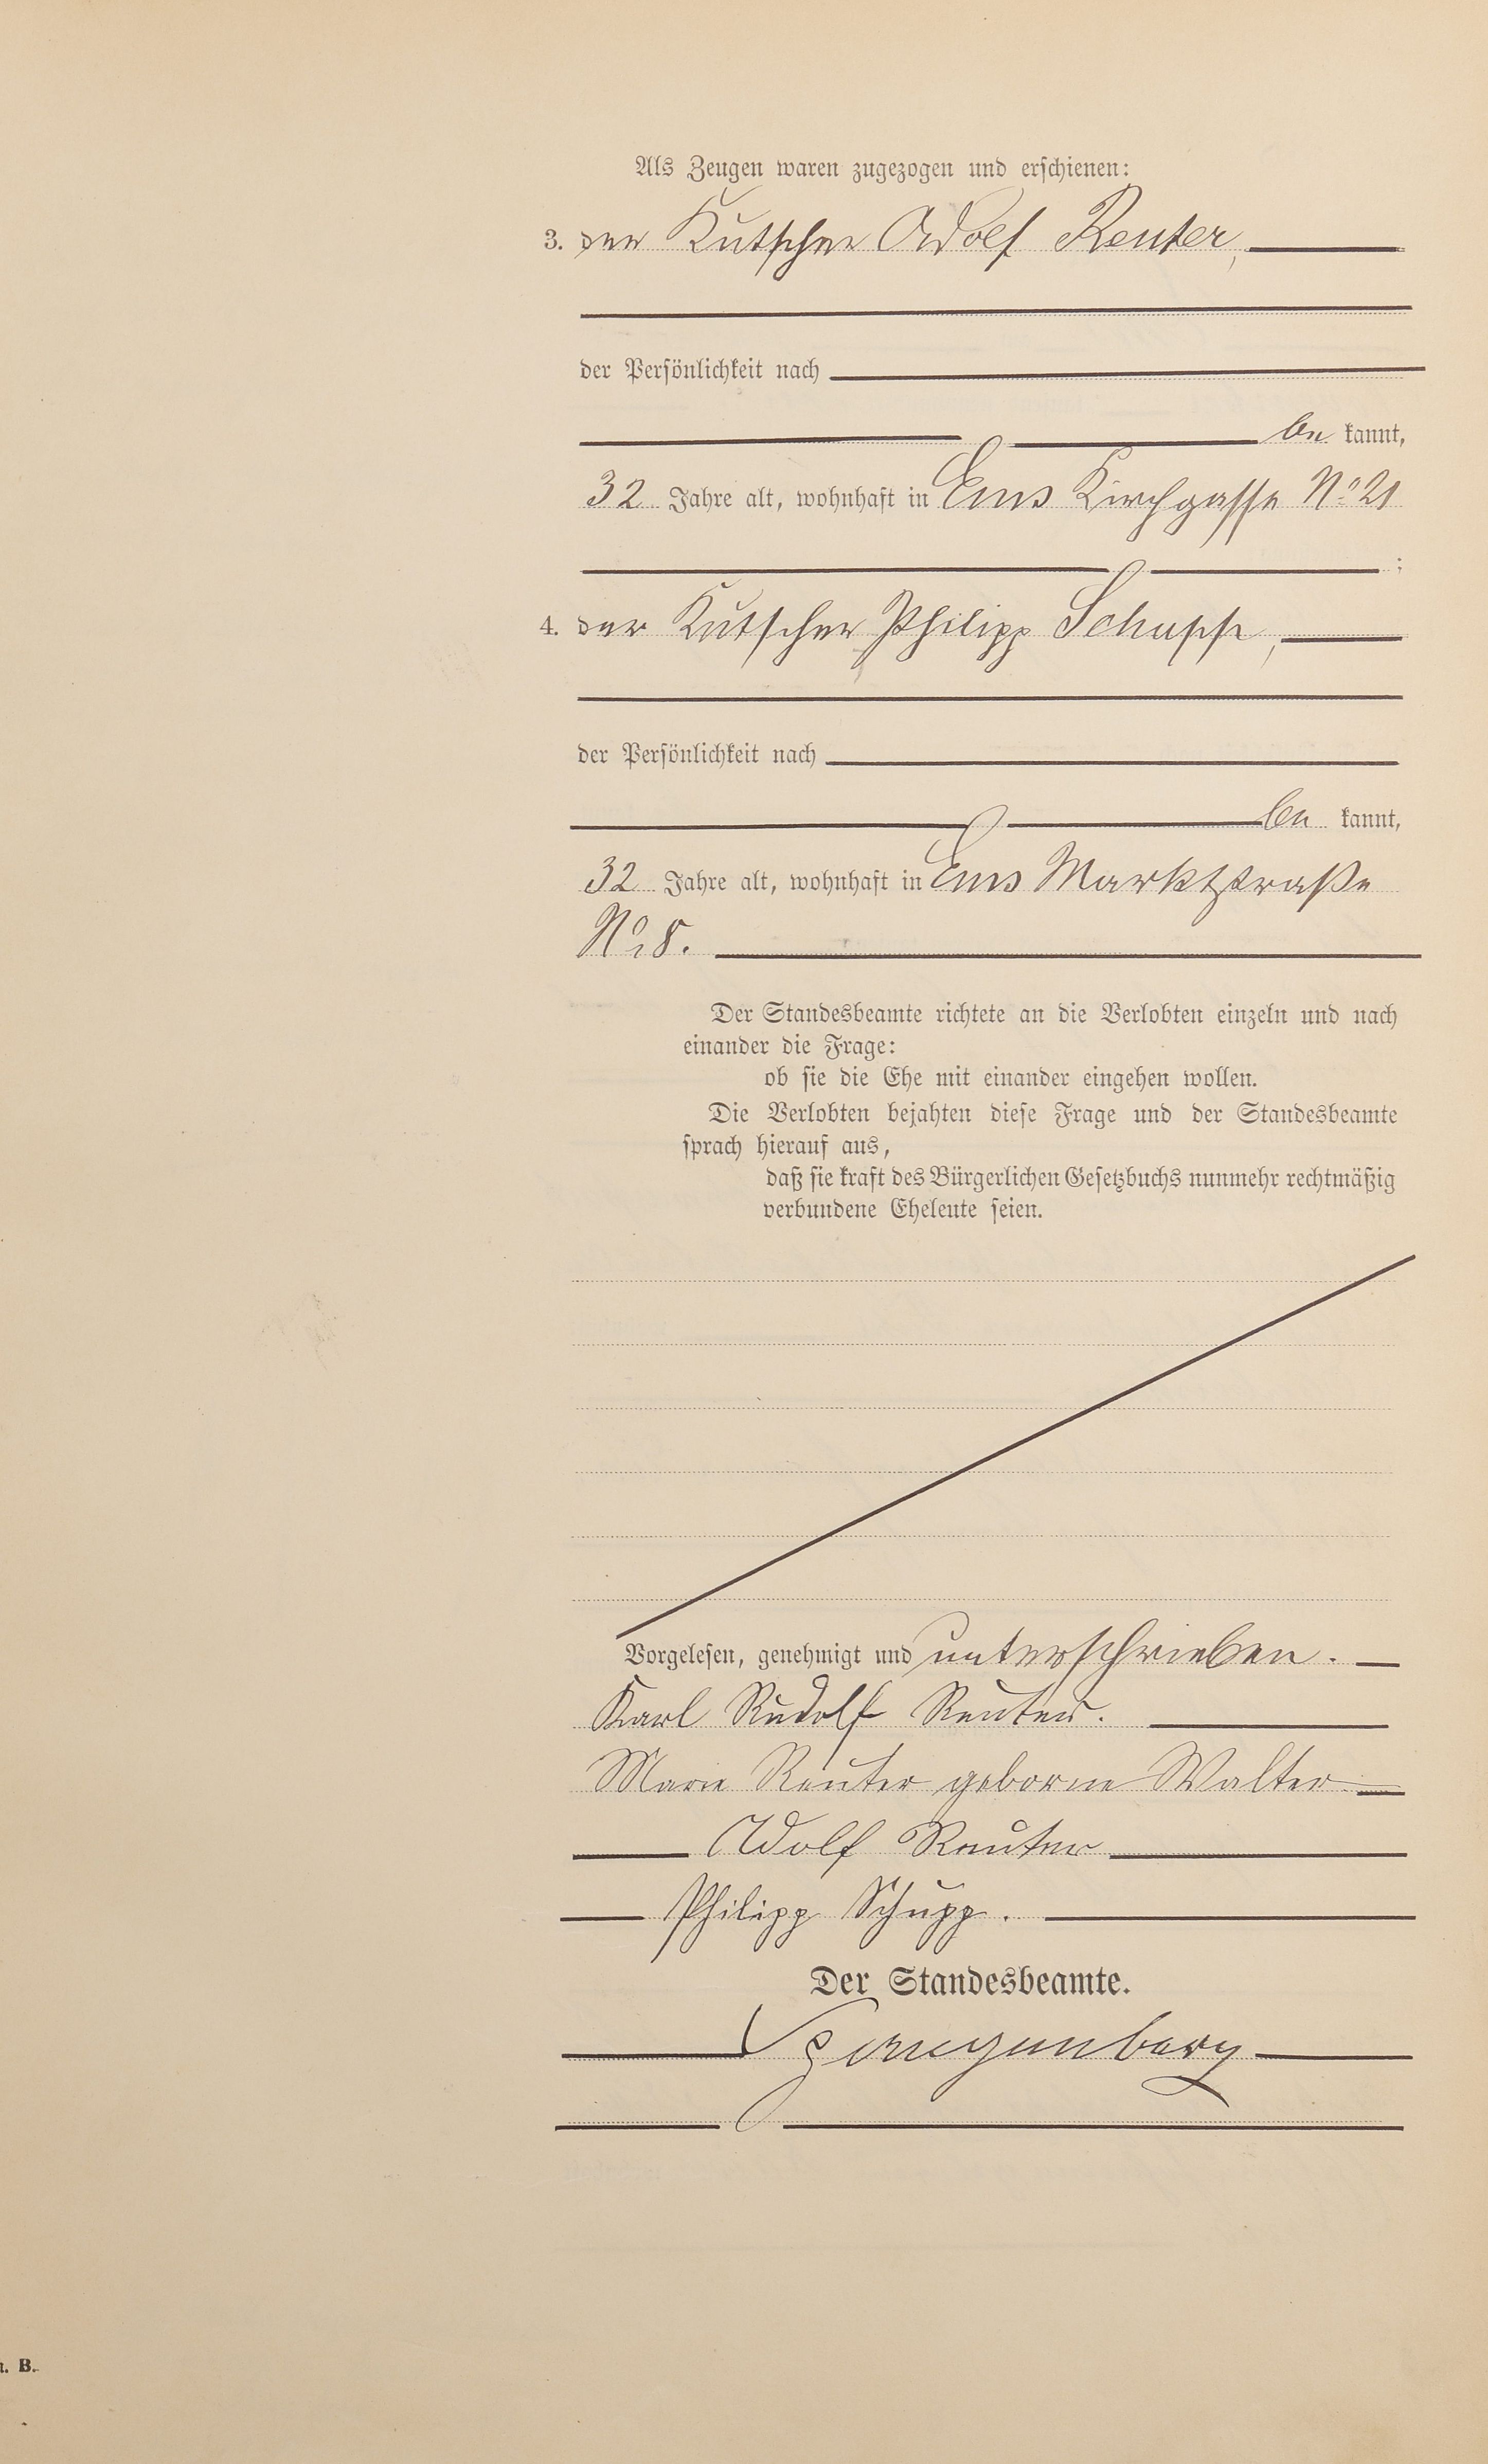 Als Zeugen waren zugezogen und erschienen:
3. der Kutscher Adolf Reuter,
der Persönlichkeit nach
be kannt,
32 Jahre alt, wohnhaft in Ems Kirchgasse No 21
;
4. der Kutscher Philipp Schupp,
der Persönlichkeit nach
be kannt,
32 Jahre alt, wohnhaft in Ems Marktstraße
No 8.
Der Standesbeamte richtete an die Verlobten einzeln und nach
einander die Frage:
ob sie die Ehe mit einander eingehen wollen.
Die Verlobten bejahten diese Frage und der Standesbeamte
sprach hierauf aus,
daß sie kraft des Bürgerlichen Gesetzbuchs nunmehr rechtmäßig
verbundene Eheleute seien.
Vorgelesen, genehmigt und unterschrieben.
Karl Rudolf Reuter.
Marie Reuter geborne Walter
Adolf Reuter
Philipp Schupp.
Der Standesbeamte.
B.